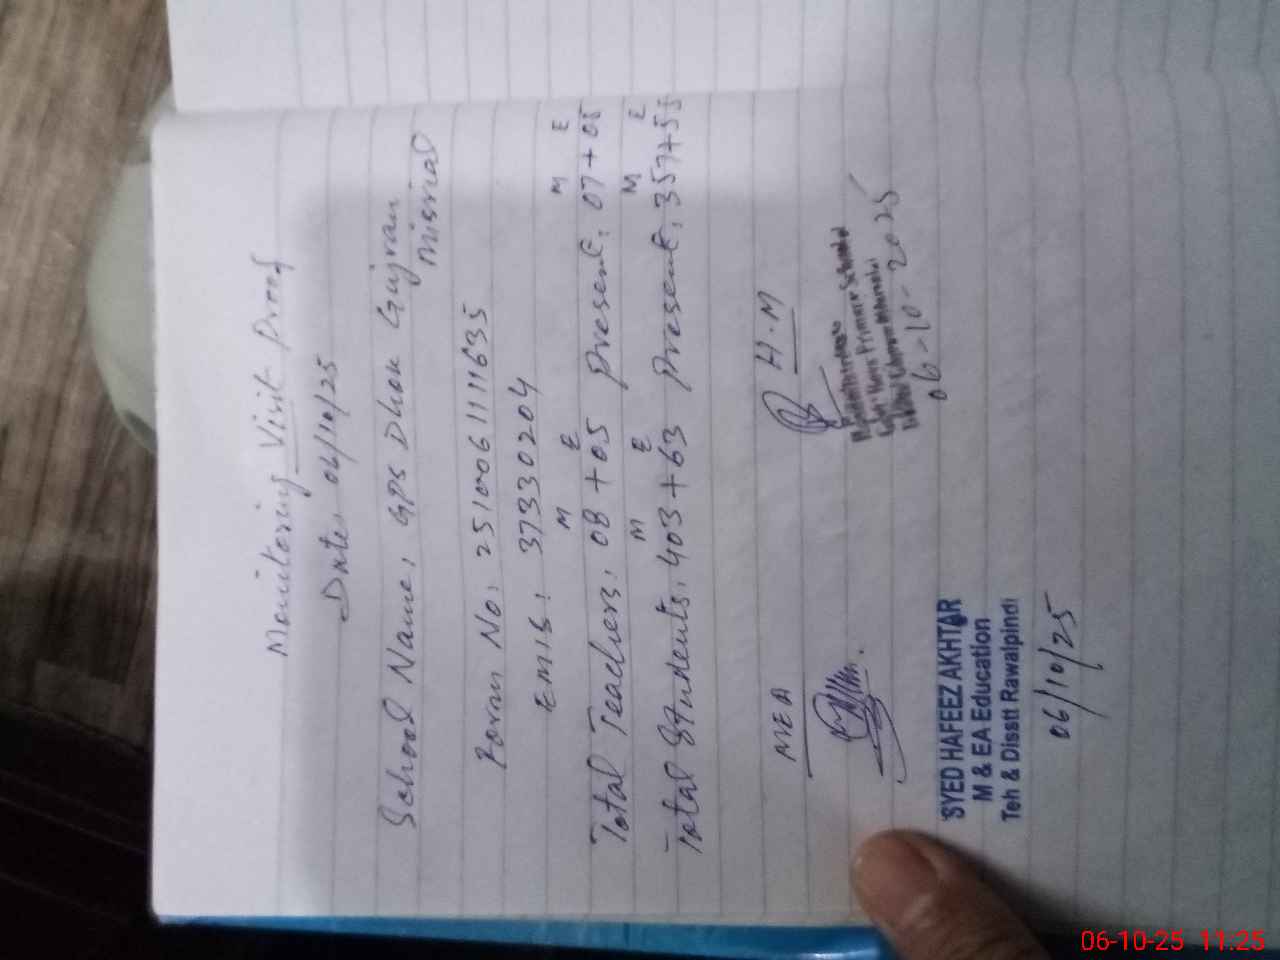 Monitoring Visit Proof
Date: 06/10/25
School Name: GPS Dhok Gujran
Misrial
Form No: 251006111635
EMIS: 37330204
M E M E
Total Teachers: 08 + 05 Present: 07 + 05
M E M E
Total Students: 403 + 63 Present: 357 + 55
MEA H.M
06-10-2025
SYED HAFEEZ AKHTAR
M & EA Education
Teh & Disstt Rawalpindi
06/10/25
06-10-25 11:25